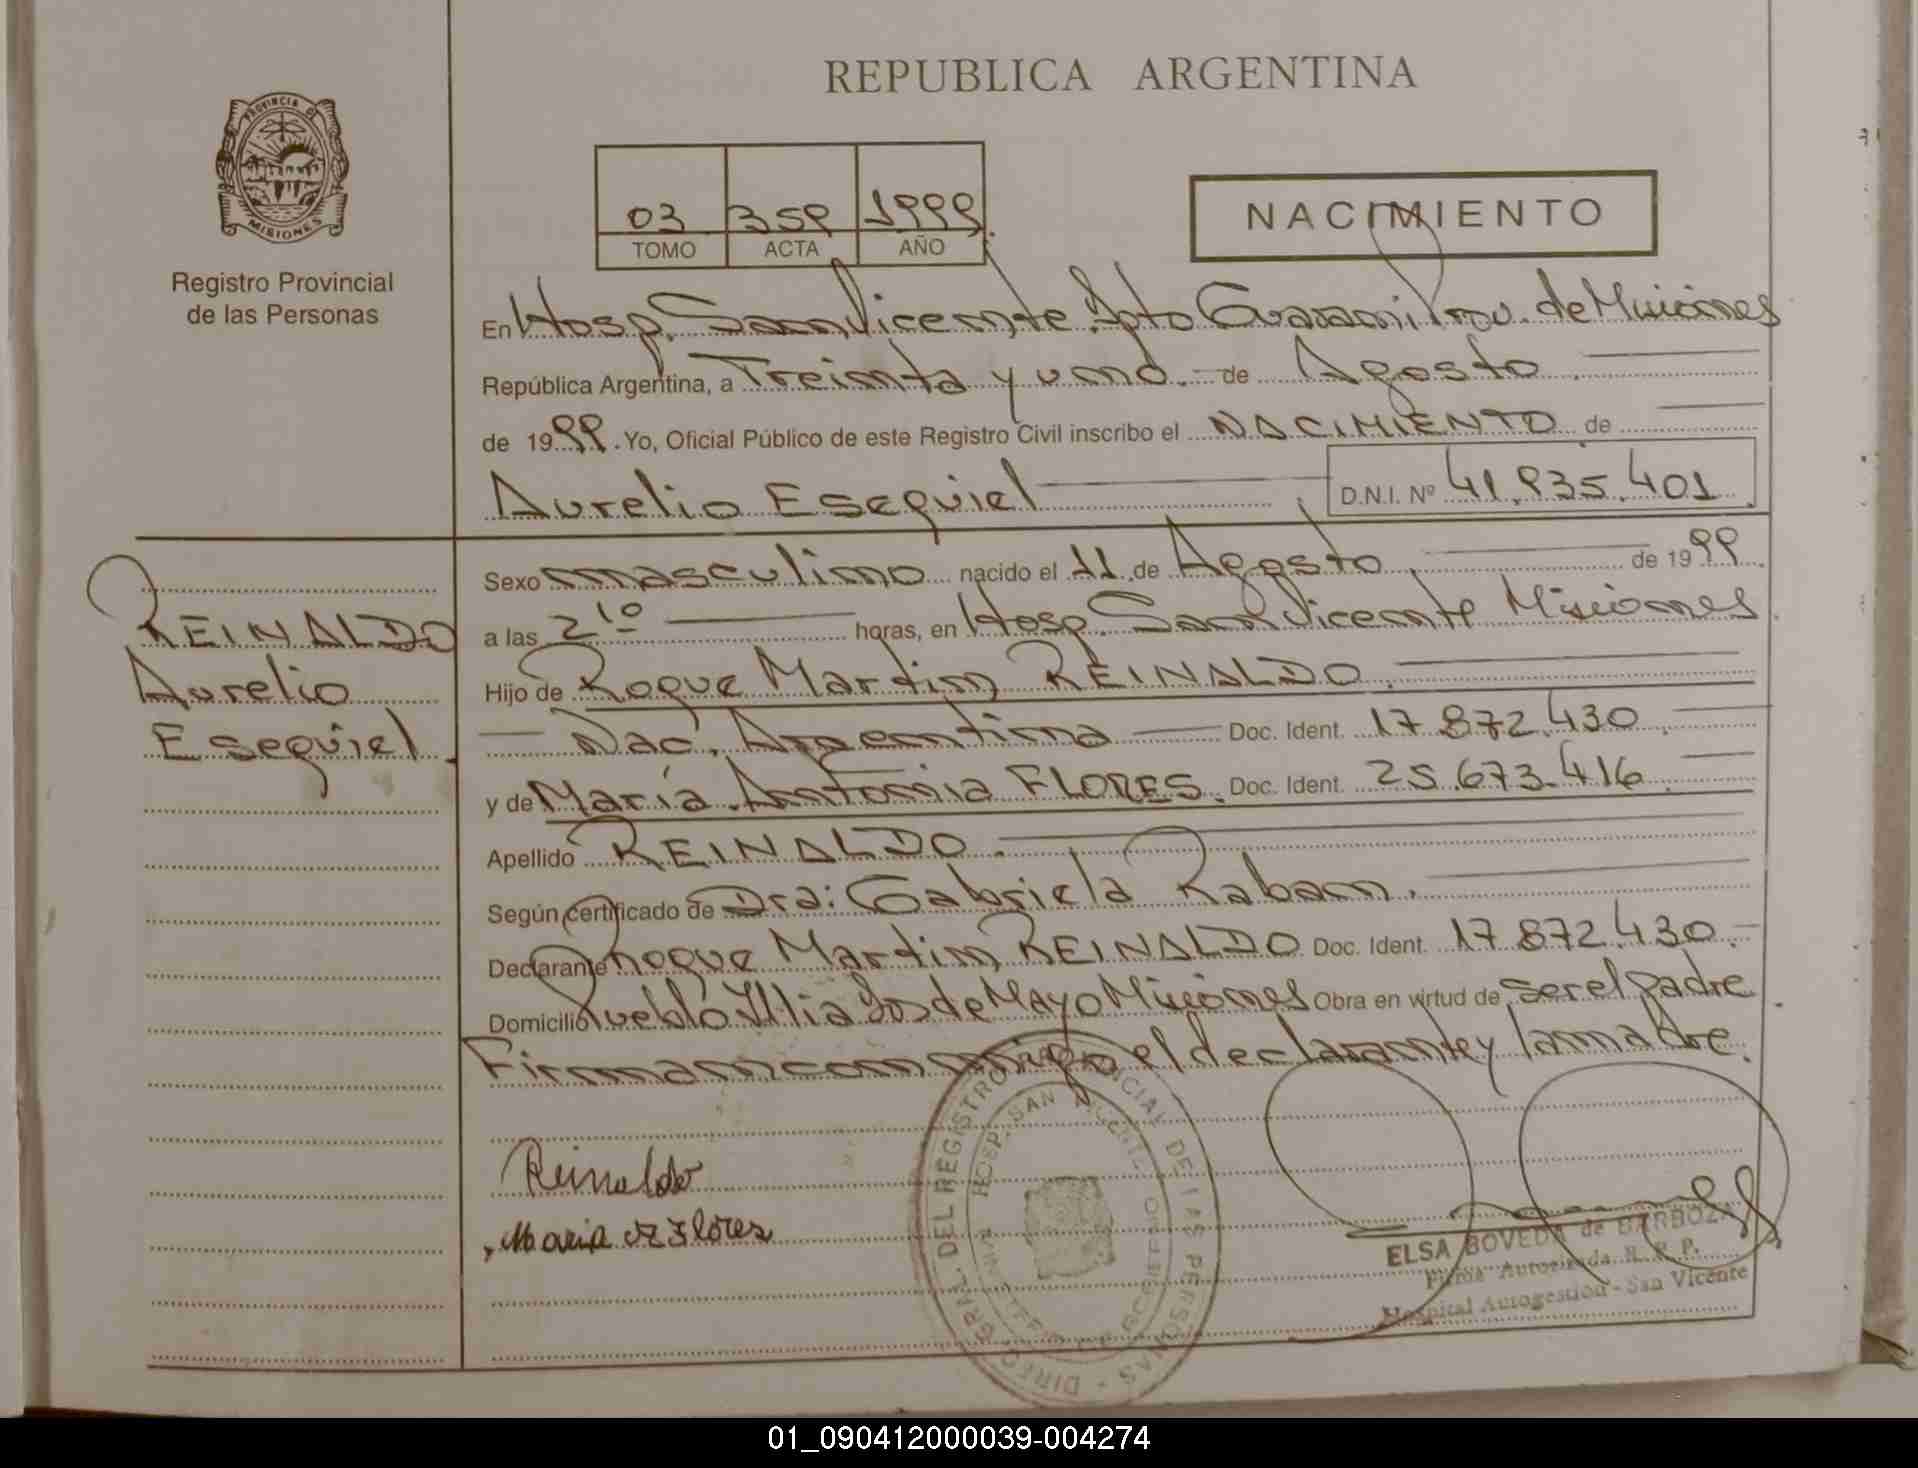 REPUBLICA ARGENTINA
PROVINCIA DE
MISIONES
Registro Provincial
de las Personas
03 359 1999
TOMO ACTA AÑO
NACIMIENTO
En Hosp. San Vicente Dpto Guarani Prov. de Misiones
República Argentina, a Treinta y uno. de Agosto
de 1999. Yo, Oficial Público de este Registro Civil inscribo el NACIMIENTO de
Aurelio Esequiel D.N.I. Nº 41.935.401
REINALDO
Aurelio
Esequiel
Sexo masculino nacido el 11 de Agosto de 1999
a las 2 10 horas, en Hosp. San Vicente Misiones
Hijo de Roque Martin REINALDO
Nac. Argentina Doc. Ident. 17.872.430
y de María Antonia FLORES. Doc. Ident. 25.673.416
Apellido REINALDO.
Según certificado de Dra: Gabriela Raban.
Declarante Roque Martin REINALDO Doc. Ident. 17.872.430.
Domicilio Pueblo Illia Dos de Mayo Misiones Obra en virtud de ser el padre
Firman conmigo el declarante y la madre.
Reinaldo
Maria Flores
DEL REGISTRO PROVINCIAL DE LAS PERSONAS - DIREC. GRAL.
HOSP. SAN VICENTE
ELSA BOVEDA de BARBOZA
Firma Autorizada R. P. P.
Hospital Autogestión - San Vicente
01_090412000039-004274